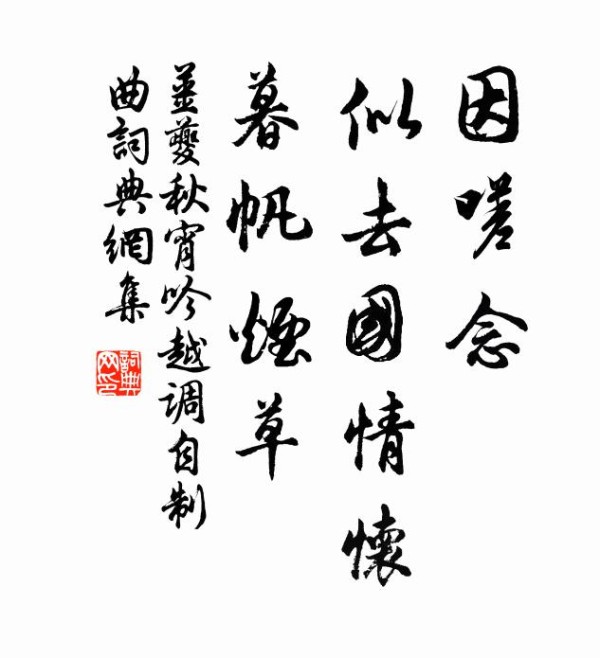 因嗟念
似去國情懷
暮帆煙草
姜夔秋宵吟越調自制
曲詞典網集
詞典网印